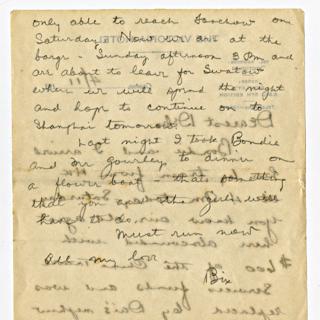 only able to reach Foochow on
Saturday. Now we are at the
barge - Sunday afternoon 3 P.m and
are about to leave for Swatow
where we will spend the night
and hope to continue on to
Shanghai tomorrow.
Last night I took Bondie
and Mr Gourley to dinner on
a flower boat - thats something
that you and the girls will
have to do.
Must run now
All my love
Bix